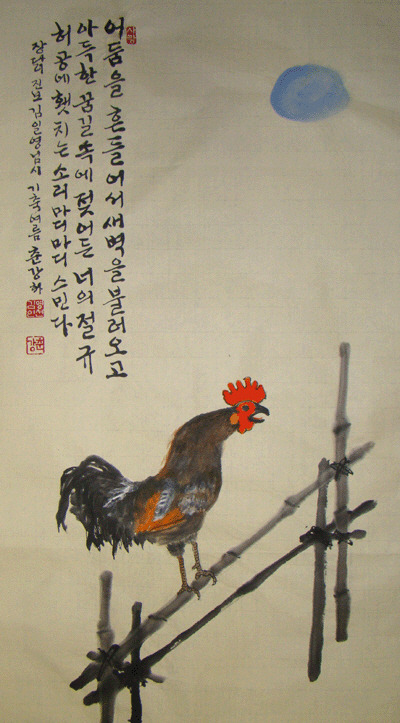 어둠을 흔들어서 새벽을 불러오고
아득한 꿈길 속에 젖어든 너의 절규
허공에 횃치는 소리 마디마디 스민다
장닭 진보 김일영님 시 기축여름 춘강 화